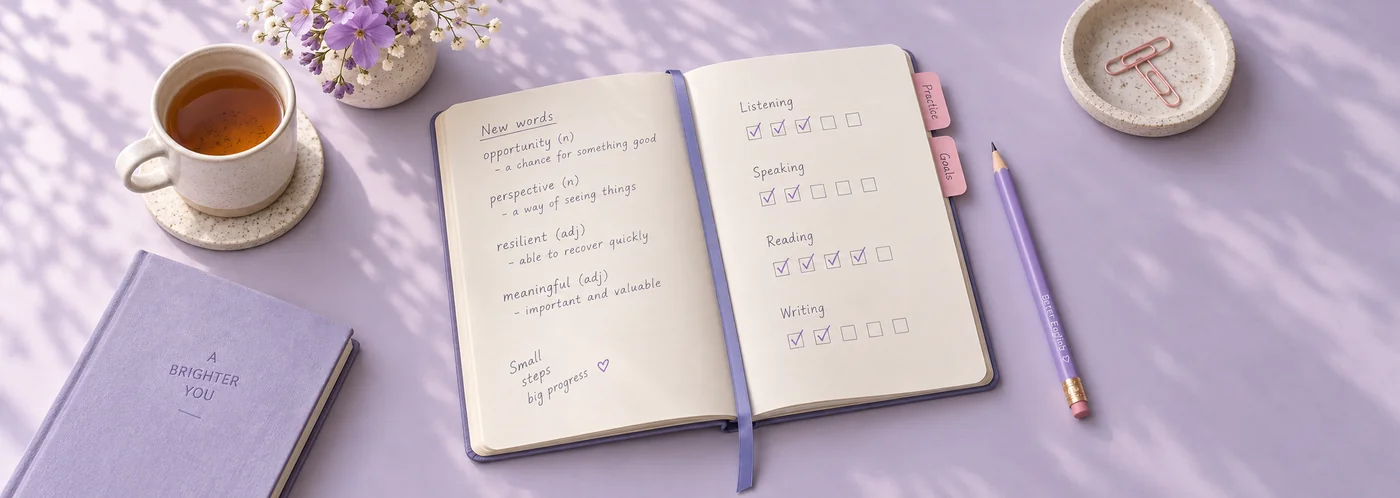 New words
opportunity (n)
- a chance for something good
perspective (n)
- a way of seeing things
resilient (adj)
- able to recover quickly
meaningful (adj)
- important and valuable
Small
steps
big progress ♡
Listening
Speaking
Reading
Writing
Practice
Goals
A
BRIGHTER
YOU
English ♡